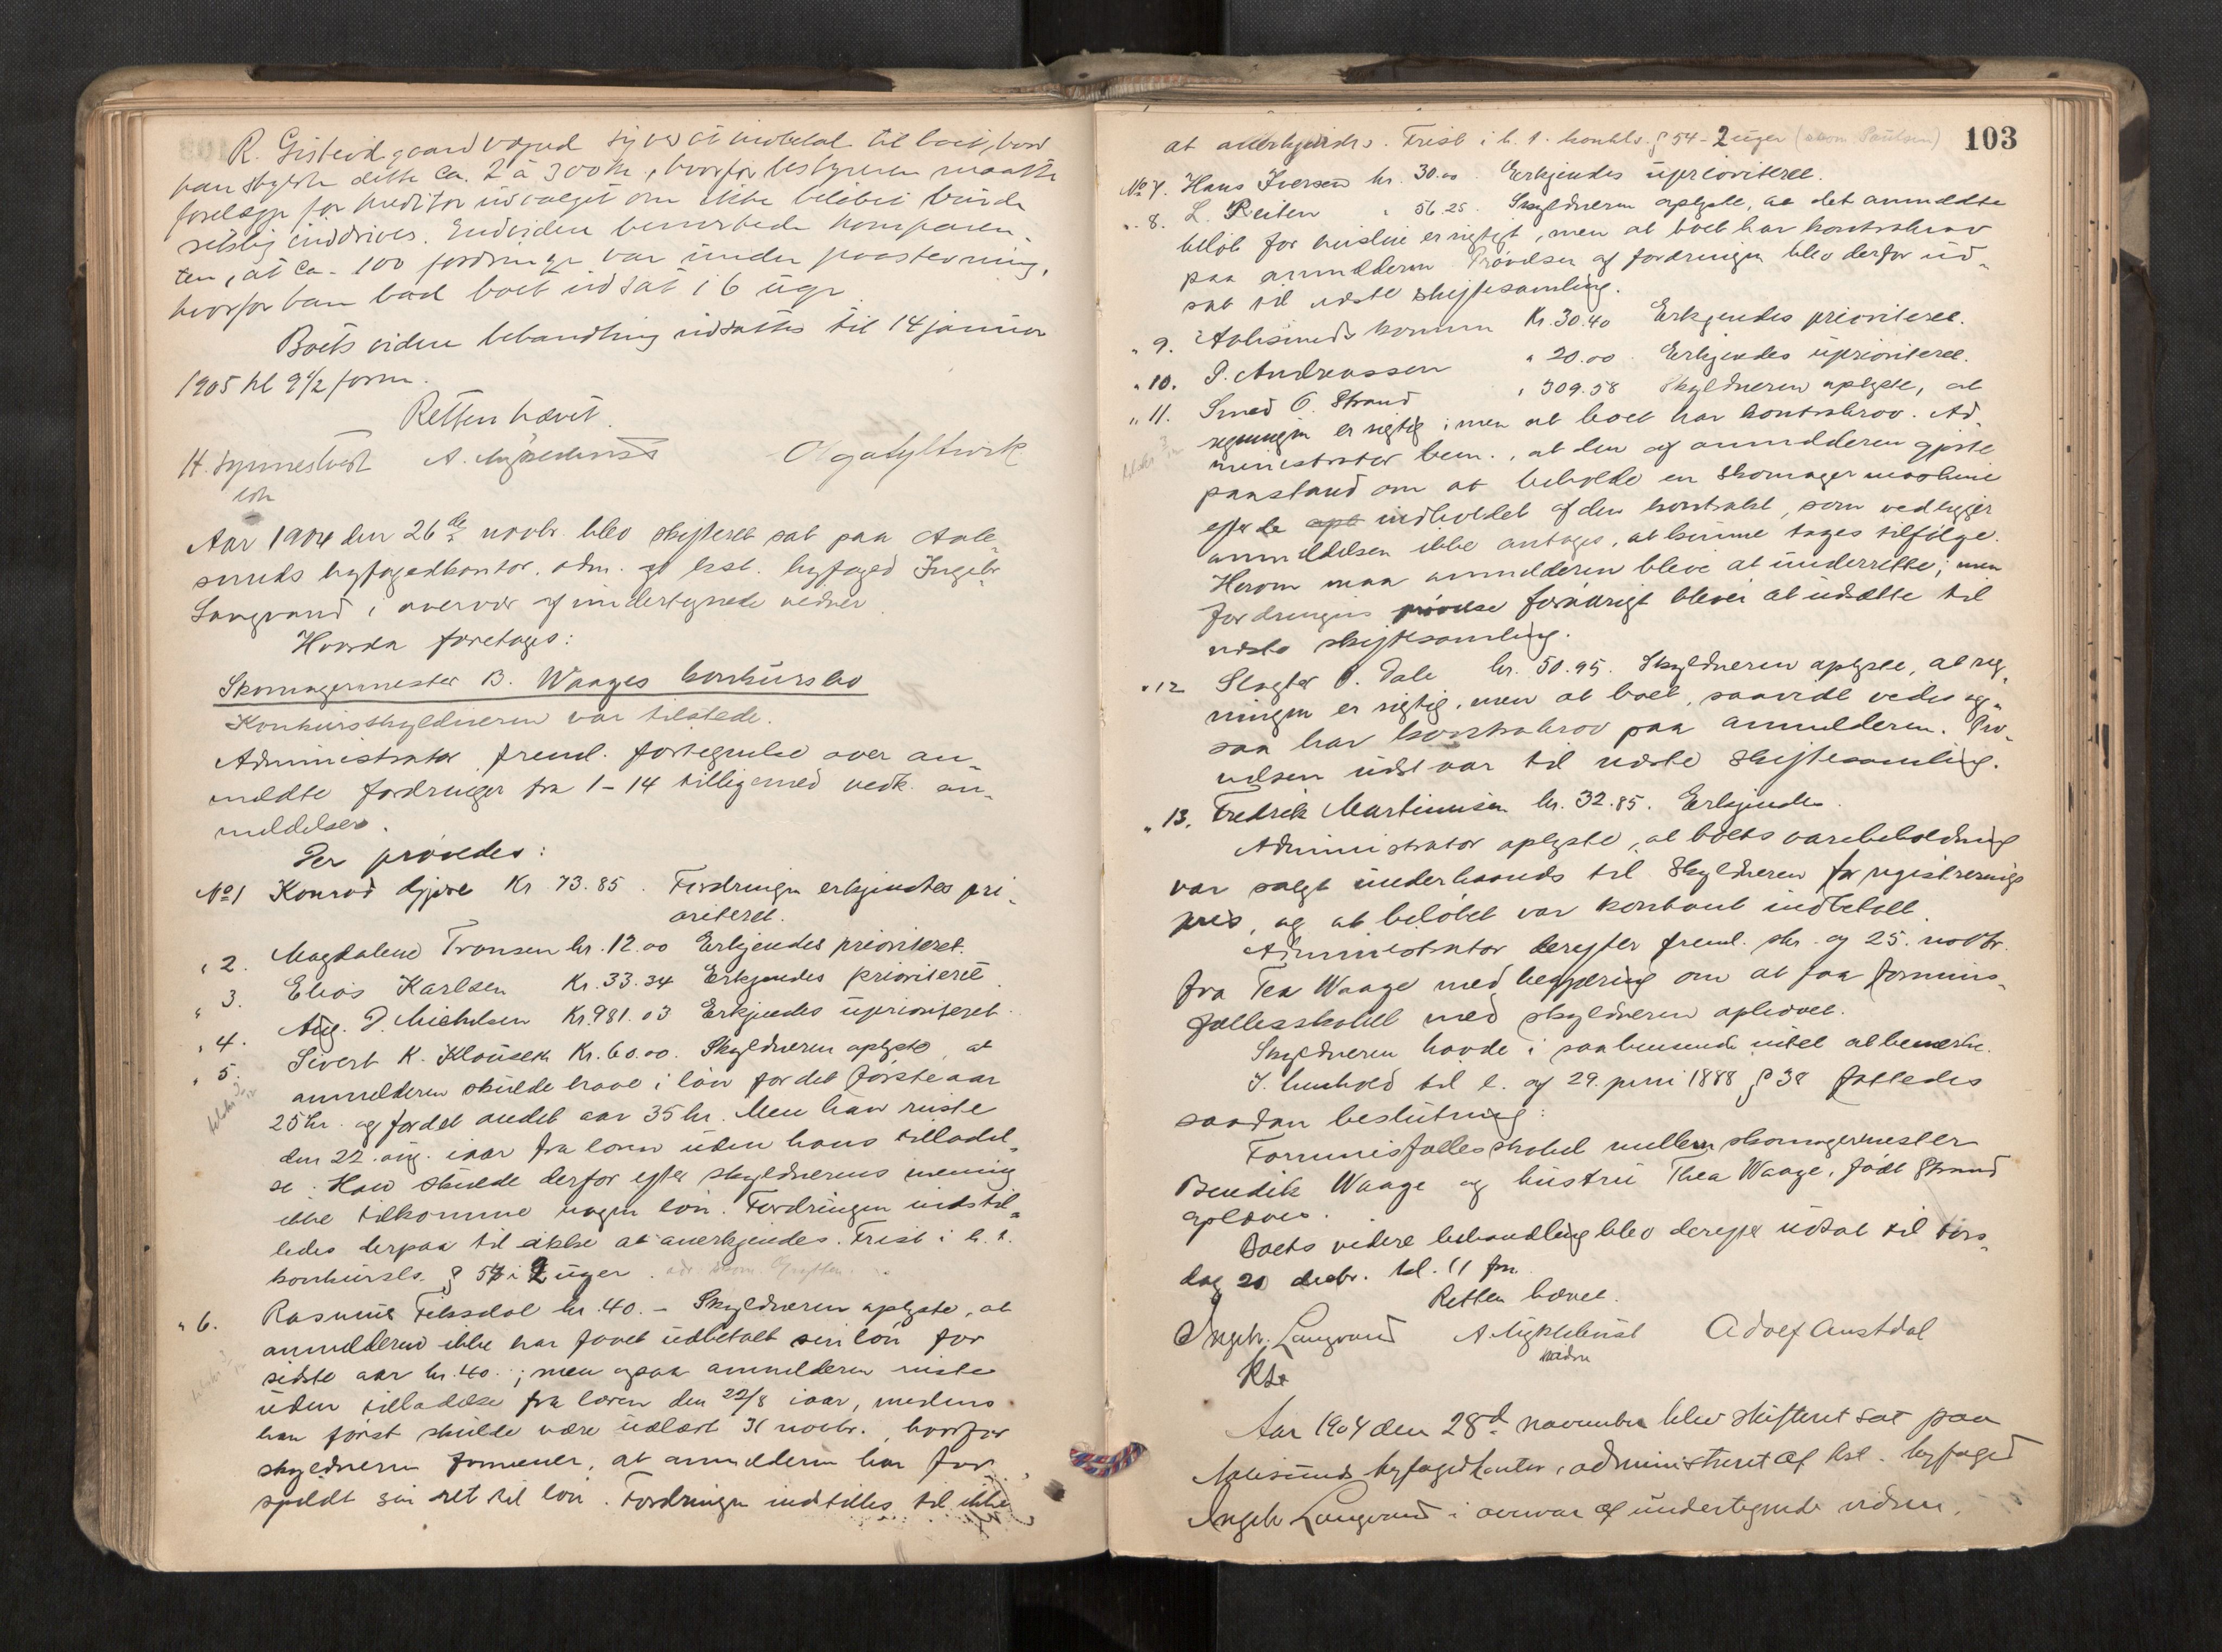 R. Gisteidgaard vægred sig ved at indbetale til boet, hvad
han skyldte dette ca. 2 à 300 kr, hvorfor bestyreren maatte
forelægge for kreditorudvalget om ikke beløbet burde
retslig inddrives. Endvidere bemerkede komparen-
ten, at ca. 100 fordringer var under paastevning,
hvorfor han bad boet udsat i 6 uger
Boets videre behandling udsattes til 14 januar
1905 kl 9 1/2 form.
Retten hævet.
H. Synnestvedt A. Myklebust Olga Lyltvirk
cst
Aar 1904 den 26de novbr. blev skifteret sat paa Aale-
sunds byfogedkontor, adm. af kst. byfoged Ingebr.
Langvand i overvær af undertegnede vidner.
Hvorda foretoges:
Skomagermester B. Waages konkursbo
Konkursskyldneren var tilstede.
Administrator freml. fortegnelse over an-
meldte fordringer fra 1-14 tilligemed vedk. an-
meldelser.
Der prøvedes:
No 1 Konrad Gjøre Kr 73.85. Fordringen erkjendtes pri-
oriteret.
" 2. Magdalene Tronsen kr. 12.00 Erkjendes prioriteret.
" 3. Elias Karlsen Kr. 33.34 Erkjendes prioriteret.
" 4. Aug. D. Michelsen Kr. 981.03 Erkjendes uprioriteret.
" 5. Sivert K. Klausen Kr. 60.00. Skyldneren oplyste, at
anmelderen skulde have i løn for det første aar
25 kr. og for det andet aar 35 kr. Men han reiste
den 22. aug. iaar fra loven uden hans tilladel-
se. Han skulde derfor efter skyldnerens mening
ikke tilkomme nogen løn. Fordringen indstil-
ledes derpaa til ikke at anerkjendes. Frist i h. t.
konkursls. § 54 i 2 uger.
" 6. Rasmus Fitsdal kr. 40.- Skyldneren oplyste, at
anmelderen ikke har faaet udbetalt sin løn for
sidste aar kr. 40.; men ogsaa anmelderen reiste
uden tilladelse fra læren den 22/8 iaar, medens
han først skulde være udlært 31 novbr., hvorfor
skyldneren formener, at anmelderen har for
spildt sin ret til løn. Fordringen indstilles til ikke
103
at anerkjendes. Frist i h. t. konkls. § 54 - 2 uger
No 7. Hans Iversen kr. 30.00. Erkjendes uprioriteret.
" 8. L. Reiten " 56.25. Skyldneren oplyste, at det anmeldte
beløb for husleie er rigtigt, men at boet har kontrakrav
paa anmelderen. Prøvelsen af fordringen blev derfor ud-
sat til næste skiftesamling.
" 9. Aalesunds kommune Kr. 30.40 Erkjendes prioriteret.
" 10. P. Andreassen " 20.00. Erkjendes uprioriteret.
" 11. Smed O. Strand " 309.58 Skyldneren oplyste, at
regningen er rigtig; men at boet har kontrakrav. Ad-
ministrator bem., at den af anmelderen gjorte
paastand om at beholde en skomagermaskine
efter de indholdet af den kontrakt, som vedligger
anmeldelsen ikke antages, at kunne tages tilfølge.
Herom maa anmelderen blive at underrette; men
fordringens prøvelse forøvrigt bliver at udsætte til
næste skiftesamling.
" 12 Slagter P. Dale kr. 50.95. Skyldneren oplyste, at reg-
ningen er rigtig, men at boet, saavidt vides og-
saa har kontrakrav paa anmelderen. Prø-
velsen udstaar til næste skiftesamling.
" 13. Fredrik Martinusen kr. 32.85. Erkjendes.
Administrator oplyste, at boets varebeholdning
var solgt underhaands til skyldneren for registrerings
pris, og at beløbet var kontant indbetalt.
Administrator derefter freml. skr. af 25. novbr.
fra Tea Waage med begjæring om at faa formues-
fællesskabet med skyldneren ophævet.
Skyldneren havde i saa henseende intet at bemerke.
I henhold til l. af 29. juni 1888 § 38 fattedes
saadan beslutning:
Formuesfællesskabet mellem skomagermester
Bendik Waage og hustru Thea Waage, født Strand
ophæves.
Boets videre behandling blev derefter udsat til tirs-
dag 20 decbr. kl. 11 fm.
Retten hævet.
Ingebr. Langvand A. Myklebust Adolf Austdal
Kst. vidne
Aar 1904 den 28de november blev skifteret sat paa
Aalesunds byfogedkontor, administreret af kst. byfoged
Ingebr Langvand i overvær af undertegnede vidner.